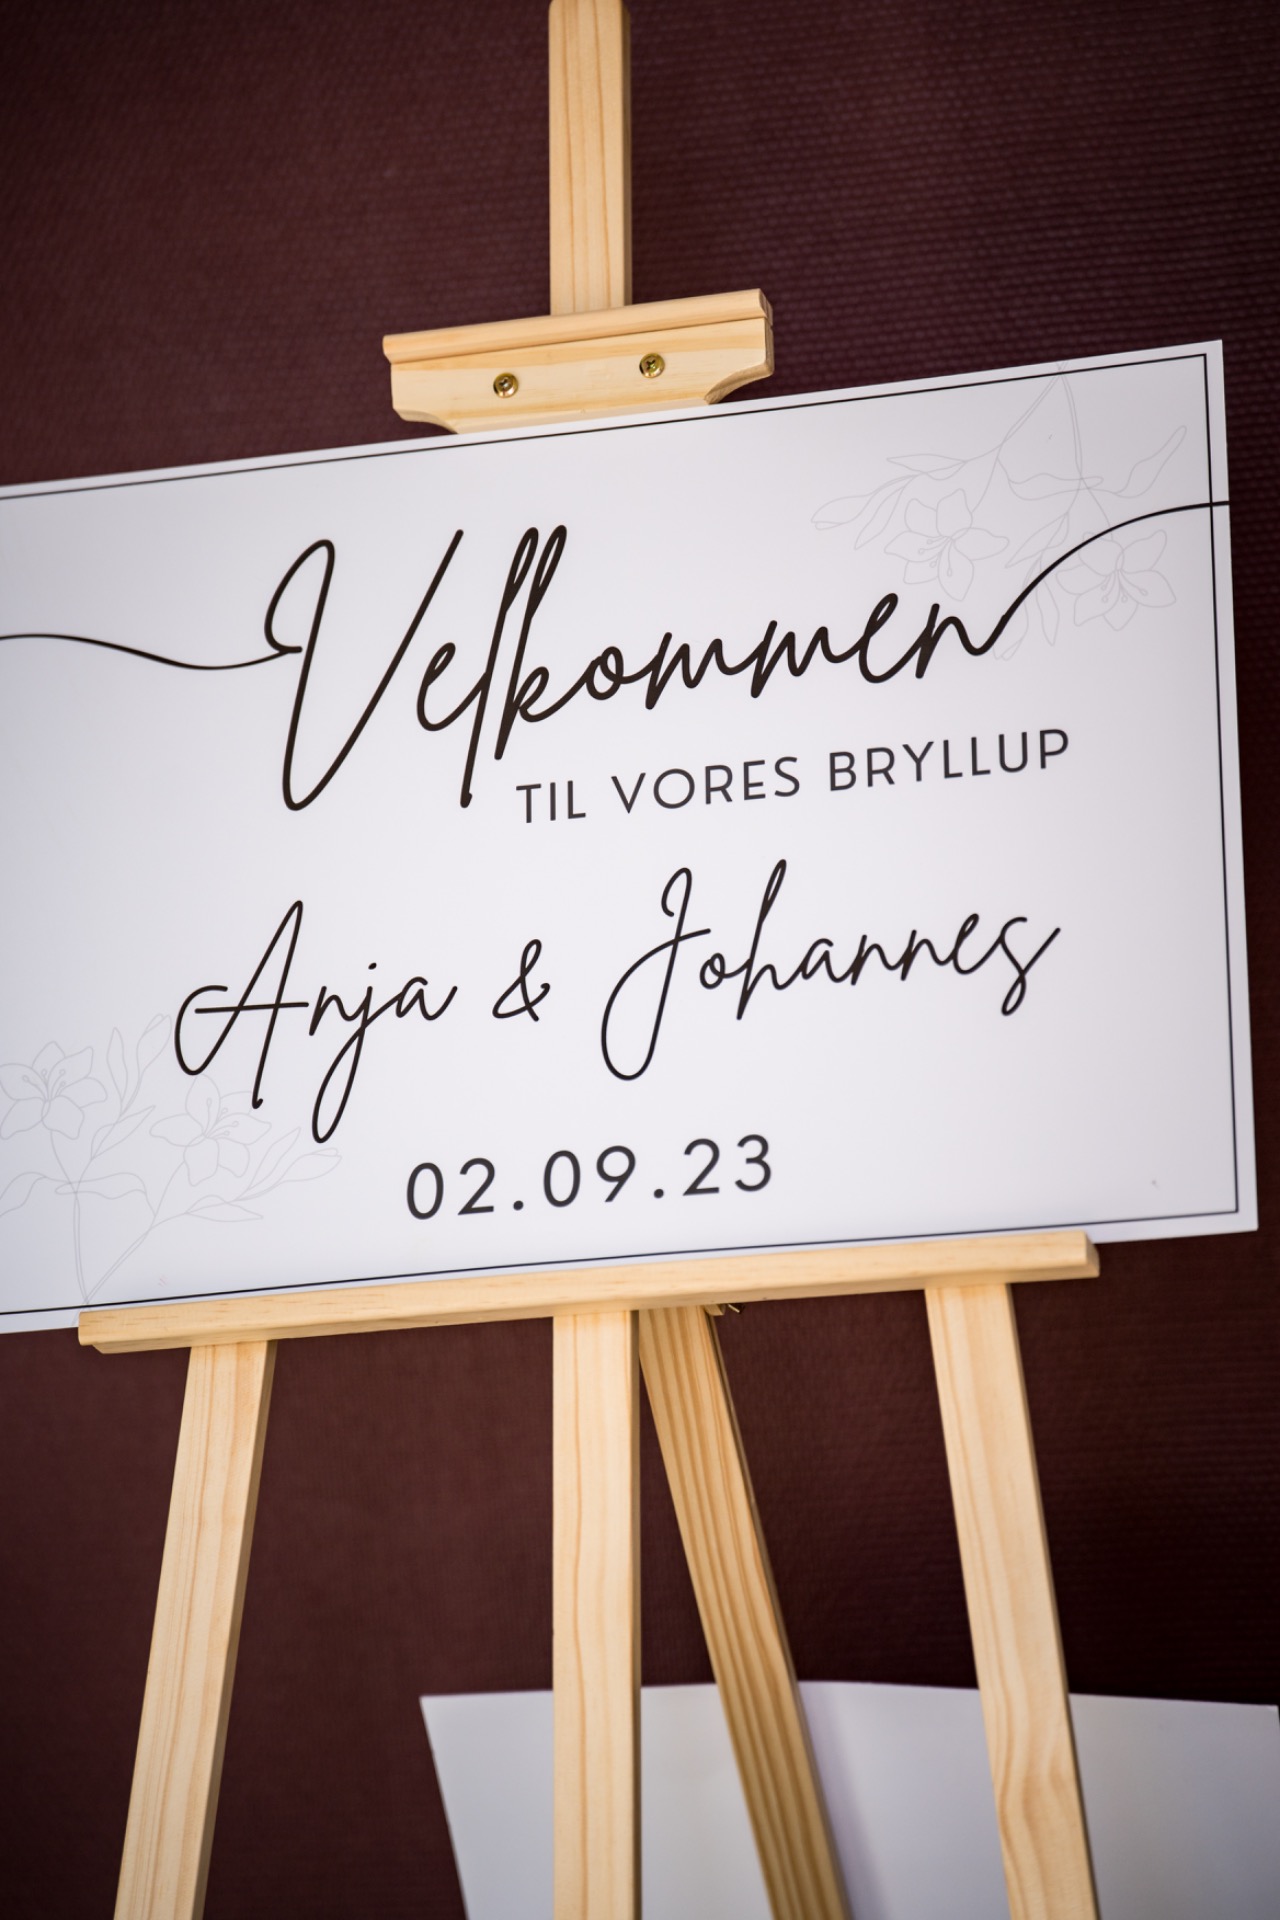 Velkommen
TIL VORES BRYLLUP
Anja & Johannes
02.09.23